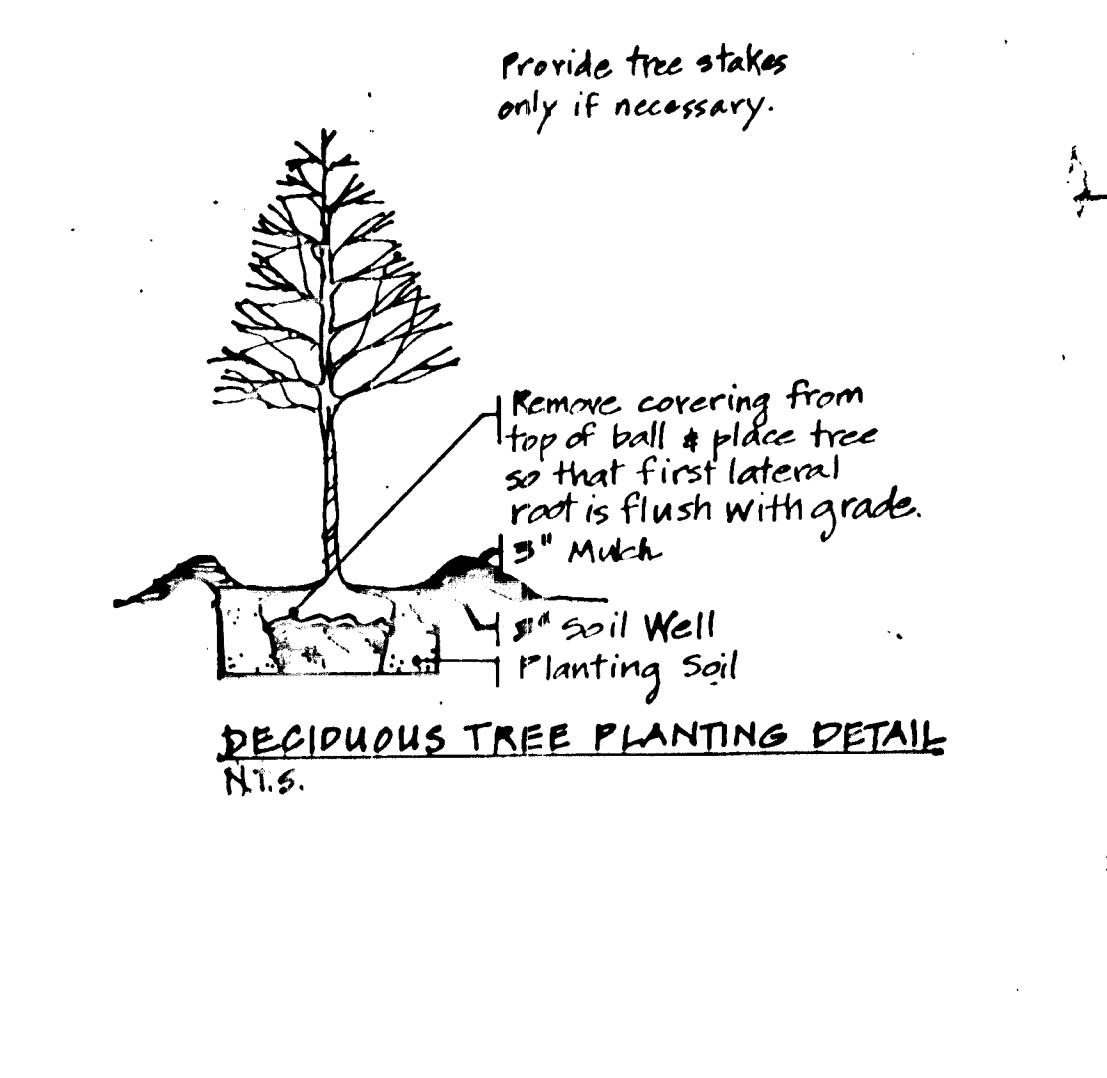 Provide tree stakes
only if necessary.
Remove covering from
top of ball & place tree
so that first lateral
root is flush with grade.
3" Mulch
3" Soil Well
Planting Soil
DECIDUOUS TREE PLANTING DETAIL
N.T.S.